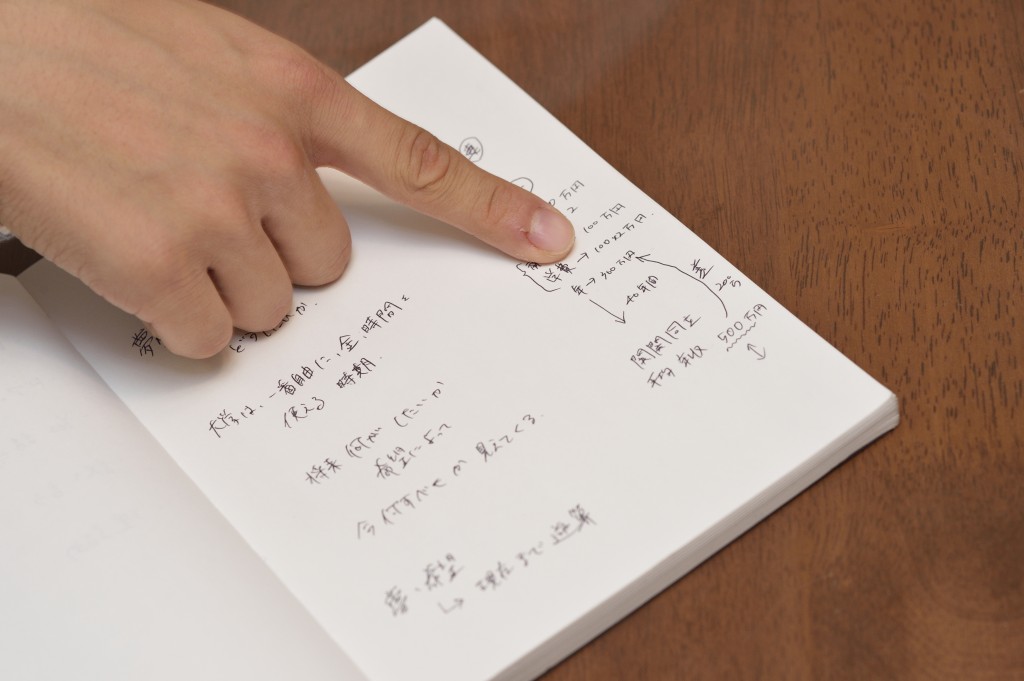 万円
2
100万円
学費→100×2万円.
年→300万円
40年間
差
200万
関関同立
平均年収 500万円
夢
どうしたいか.
大学は、一番自由に、金、時間を
使える 時期.
将来 何が したいか
希望によって
今何すべきか 見えてくる.
夢・希望
↳ 現在まで 逆算